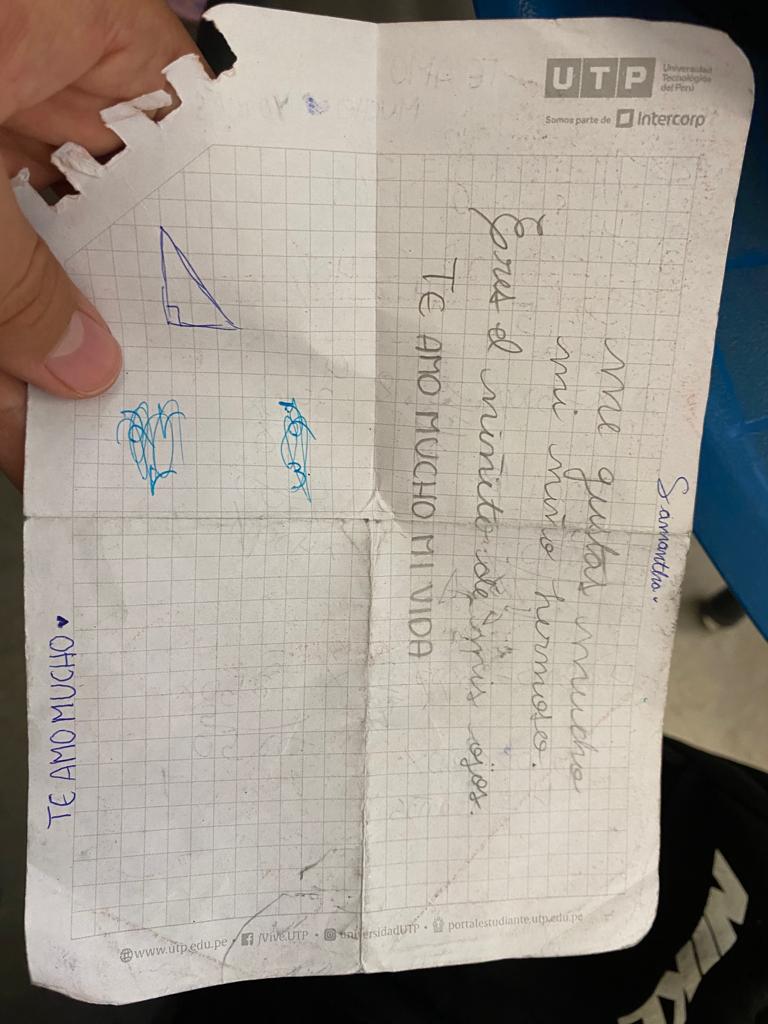 UTP
Universidad
Tecnológica
del Perú
Somos parte de Intercorp
Samantha
me gustas mucho
mi niño hermoso.
Eres el niñito de mis ojos.
TE AMO MUCHO MI VIDA
TE AMO MUCHO
www.utp.edu.pe • /Vive.UTP • universidadUTP • portalestudiante.utp.edu.pe
TE AMO
MUCHO
NIKE